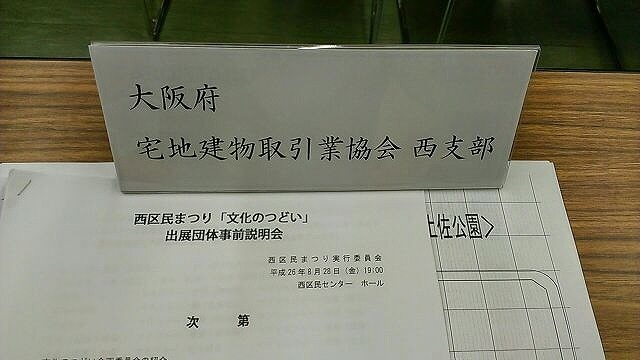 大阪府
宅地建物取引業協会 西支部
西区民まつり「文化のつどい」
出展団体事前説明会
西区民まつり実行委員会
平成26年8月28日(金)19:00
西区民センター ホール
次 第
土佐公園>